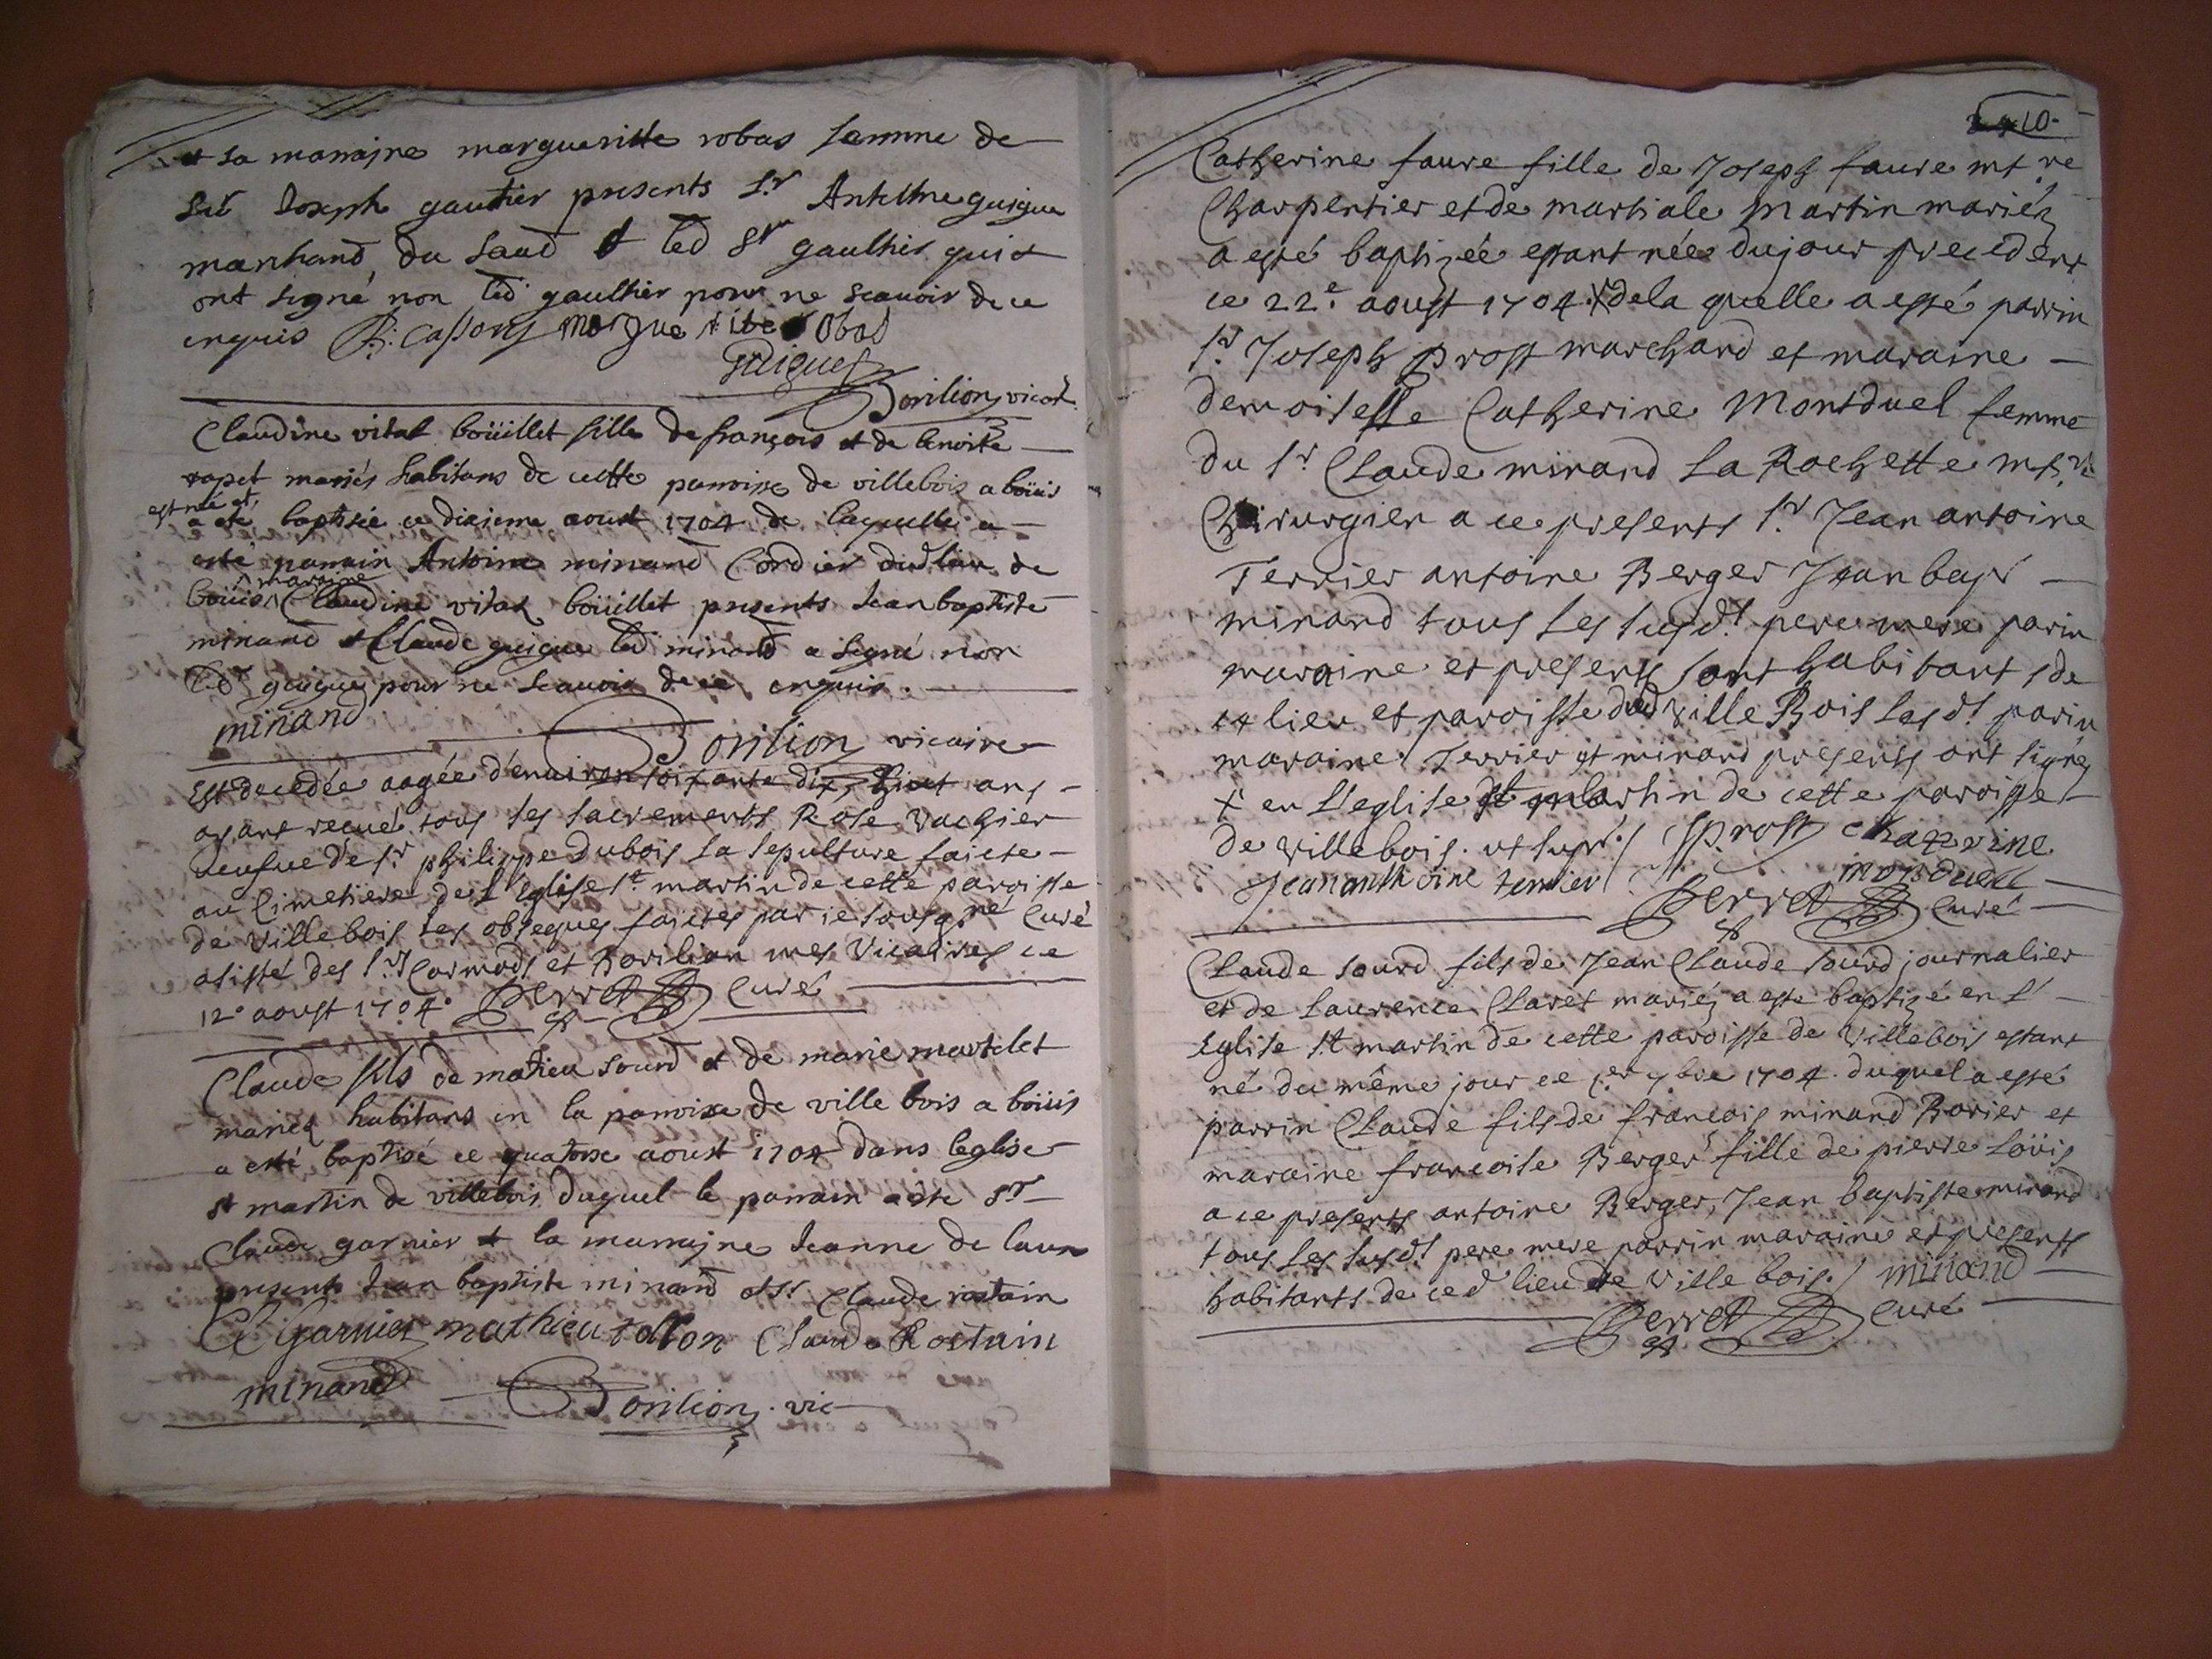 et sa marrajne margueritte robas femme de
Sr Joseph gautier presents Sr Antelme guigue
marchand du Saud et led Sr gaultier qui
ont signé non led gaultier pour ne scavoir de ce
enquis marguerite robas
Guigue
Borilion vicaire
Claudine vital boüillet fille de françois et de benoite
rapet mariés habitans de cette parroisse de villebois a boüis
est née et
a esté baptisée ce dixieme aoust 1704 de laquelle a
esté parrain Antoine minand Cordier dud lieu de
maraine
boüis Claudine vital boüillet presents Jean baptiste
minand et Claude guigue led minand a signé non
led guigue pour ne scavoir de ce enquis.
minand
Borilion vicaire
Est decedée aagée d'environ soixante dix huit ans
ayant receue tous ses sacrements Rose Vachier
veufue de sr philippe Dubois sa sepulture faicte
au Cimetiere de L'Eglise st martin de cette paroisse
de Villebois les obseques faictes par ie sousgné Curé
asisté des srs Cormods et Borilion mes Vicaires ce
12e aoust 1704. Perret Curé
Claude fils de matieu sourd et de marie martelet
mariez habitans en la parroisse de ville bois a boüis
a esté baptisé ce quatorze aoust 1704 dans leglise
st martin de villebois duquel le parrain a este sr
Claude garnier et la marrajne Jeanne de laur
presents Jean baptiste minand et sr Claude rostain
C garnier mathieu tollon Claude Rostain
minand Borilion. vic
10.
Catherine faure fille de Joseph faure mtre
Charpentier et de martiale martin mariéz
a esté baptizée estant née du jour precedent
ce 22e. aoust 1704 X de la quelle a esté parrin
sr Joseph prost marchand et maraine
demoiselle Catherine Montduel femme
du sr Claude minand La Rochette mtre
Chirurgien a ce presents sr Jean antoine
Terrier antoine Berger Jean bapt
minand tous les susdt pere mere parin
maraine et presents sont habitants de
ce lieu et paroisse dud ville Bois lesdt parin
maraine Terrier et minand presents ont signéz
X en L'eglise st martin de cette paroisse
de villebois. ut supra / Prost chaterine
Jean anthoine terrier monduell
Perret Curé
Claude sourd fils de Jean Claude sourd journalier
et de Laurence Claret mariéz a esté baptizé en L'
Eglise st martin de cette paroisse de Villebois estant
né du même jour ce 1er 7bre 1704. duquel a esté
parrin Claude fils de francois minand Borier et
maraine francoise Berger fille de pierre Loüis
a ce presents antoine Berger, Jean baptiste minand
tous les susdt pere mere parrin maraine et presents
habitants de ced lieu de Ville bois. / minand
Perret Curé